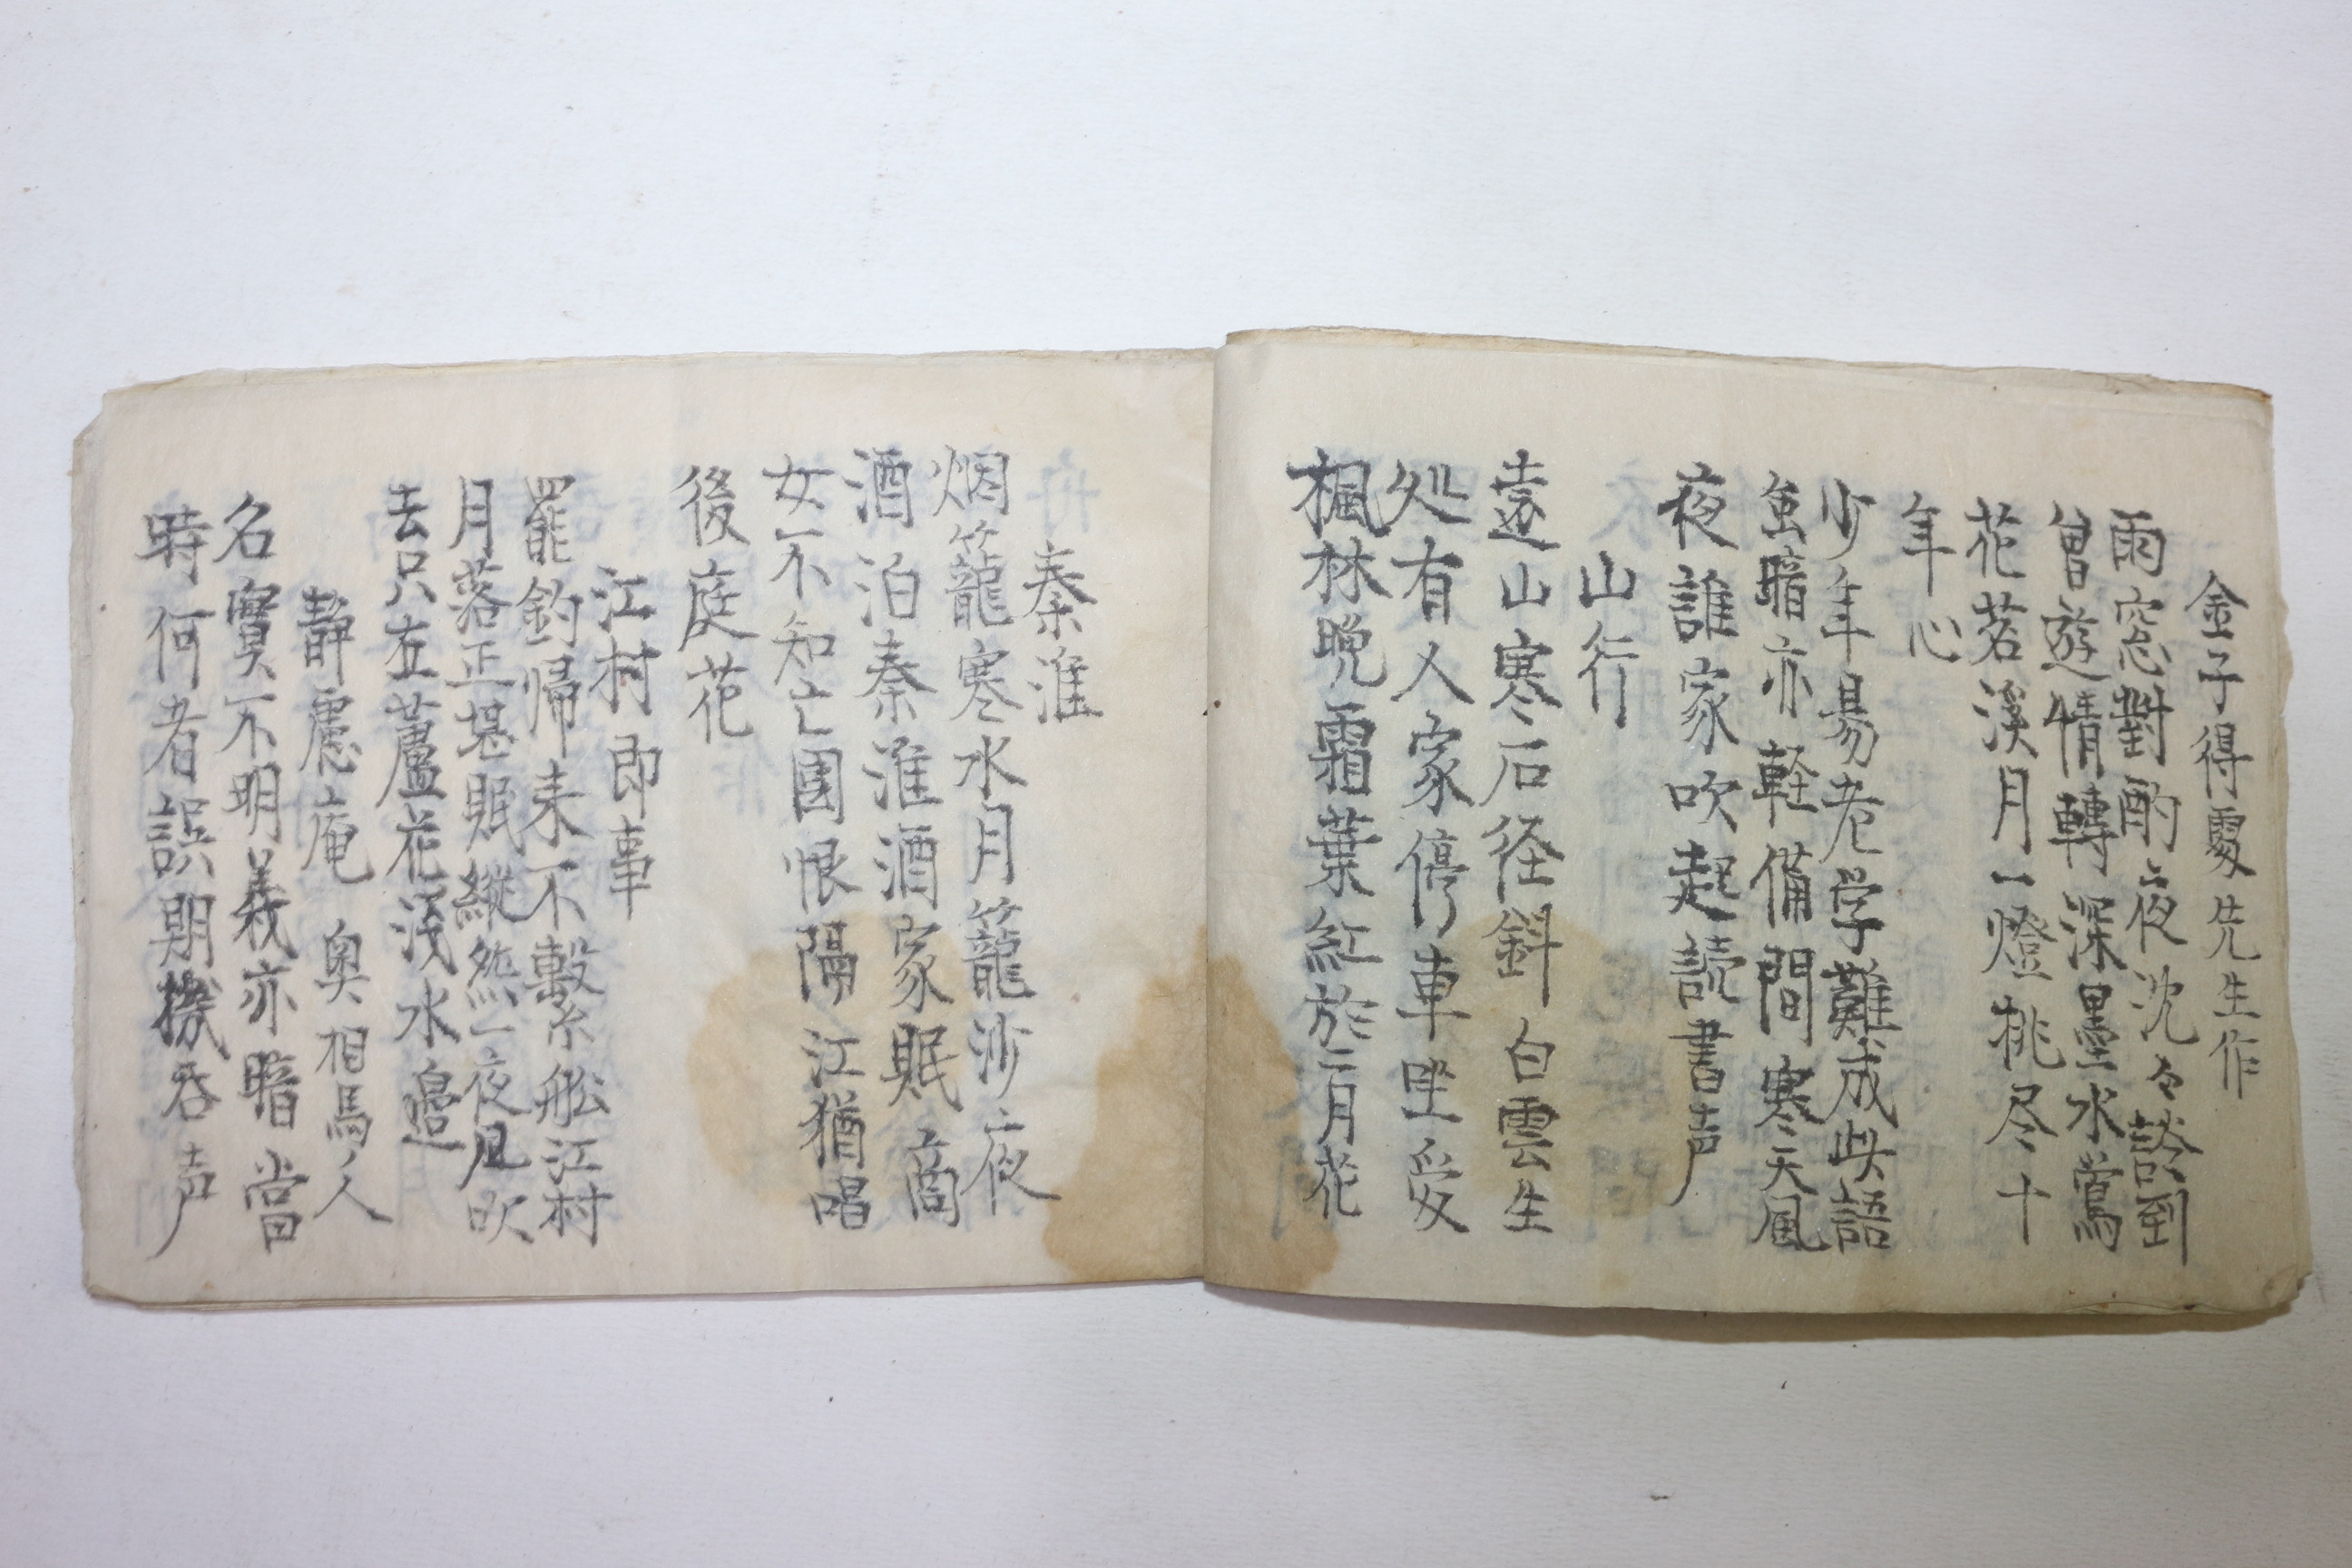 金子得處先生作
雨窓對酌夜沈々話到
曽遊情轉深墨水鶯
花苕溪月一燈挑尽十
年心
少年易老学難成此語
虽暗亦軽備間寒天風
夜誰家吹起読書声
山行
遠山寒石径斜白雲生
処有人家停車坐爱
楓林晩霜葉紅於二月花
秦淮
烟籠寒水月籠沙夜
酒泊秦淮酒家眠商
女不知亡國恨隔江猶唱
後庭花
江村即事
罷釣帰来不繫舩江村
月落正堪眠縦然一夜風吹
去只在蘆花浅水邉
靜慮庵 奥相馬人
名實不明義亦暗當
時何者誤期機呑声